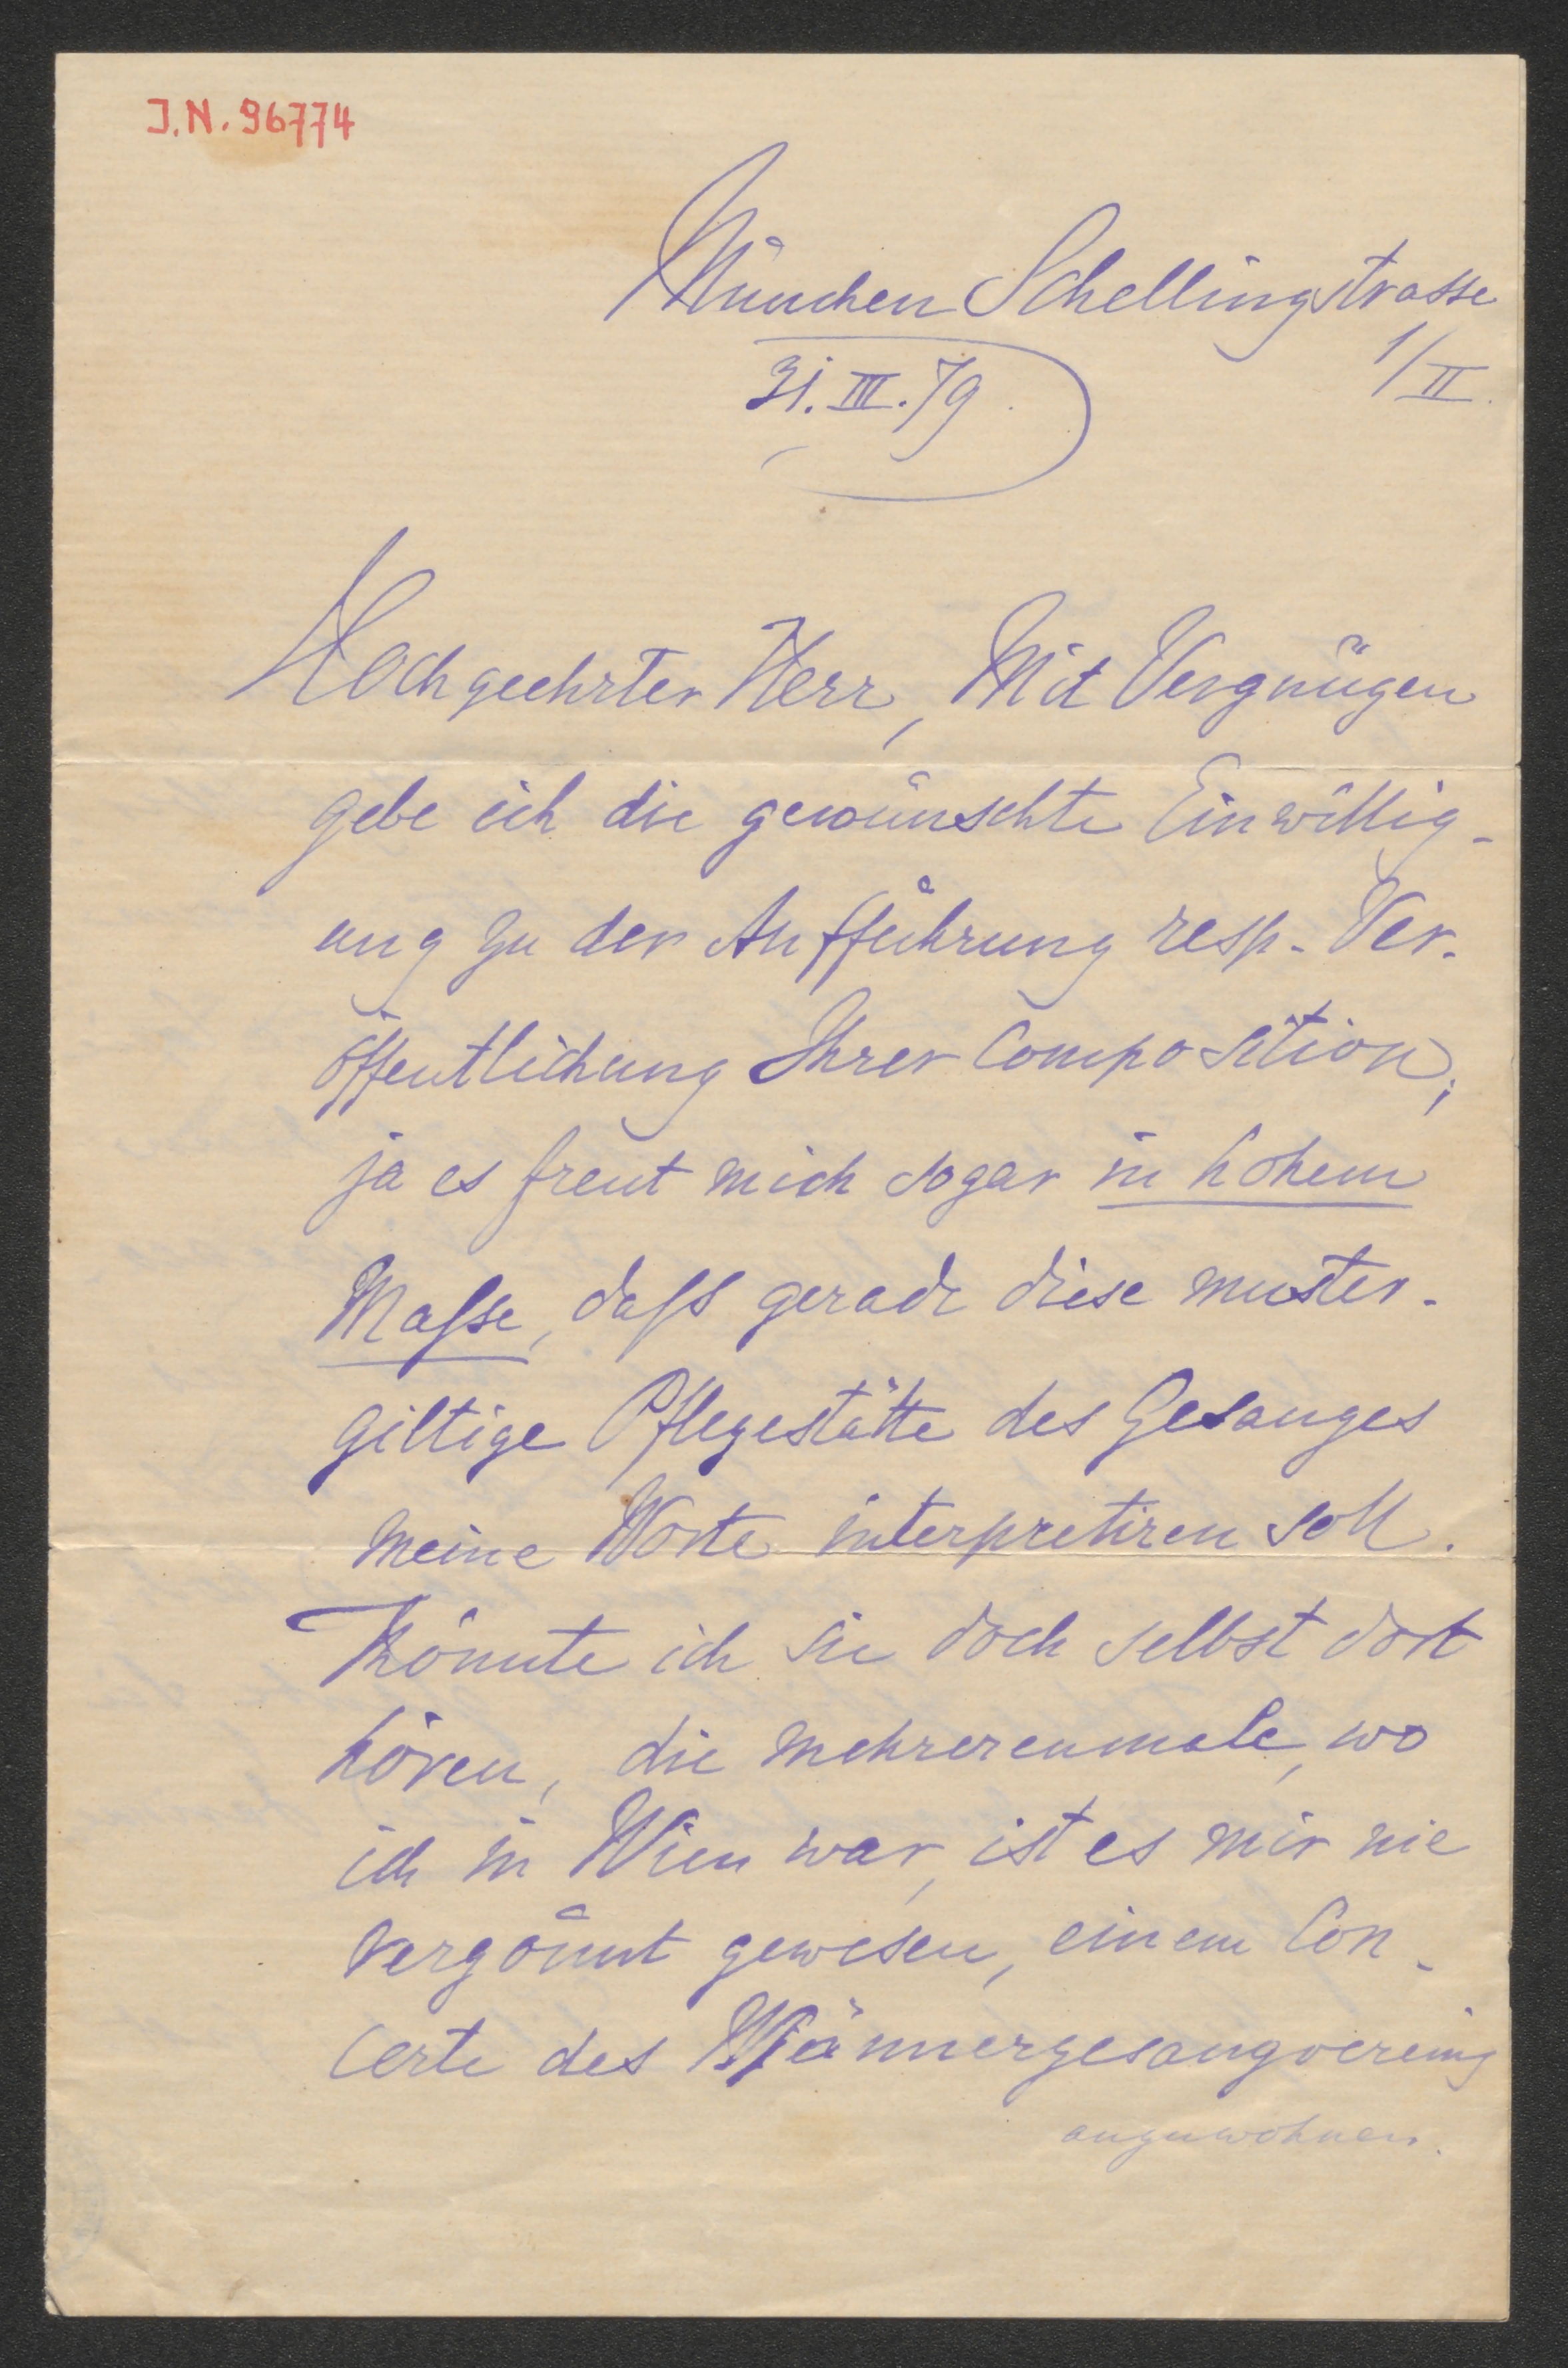 J.N. 96774
München Schellingstrasse
1/II.
31. III. 79.
Hochgeehrter Herr, Mit Vergnügen
gebe ich die gewünschte Einwillig-
ung zu der Aufführung resp. Ver-
öffentlichung Ihrer Composition,
ja es freut mich sogar in hohem
Maſse, daſs gerade diese muster-
giltige Pflegestätte des Gesanges
meine Worte interpretiren soll.
Könnte ich sie doch selbst dort
hören, die mehrerenmale, wo
ich in Wien war, ist es mir nie
vergönnt gewesen, einem Con-
certe des Männergesangvereins
anzuwohnen.